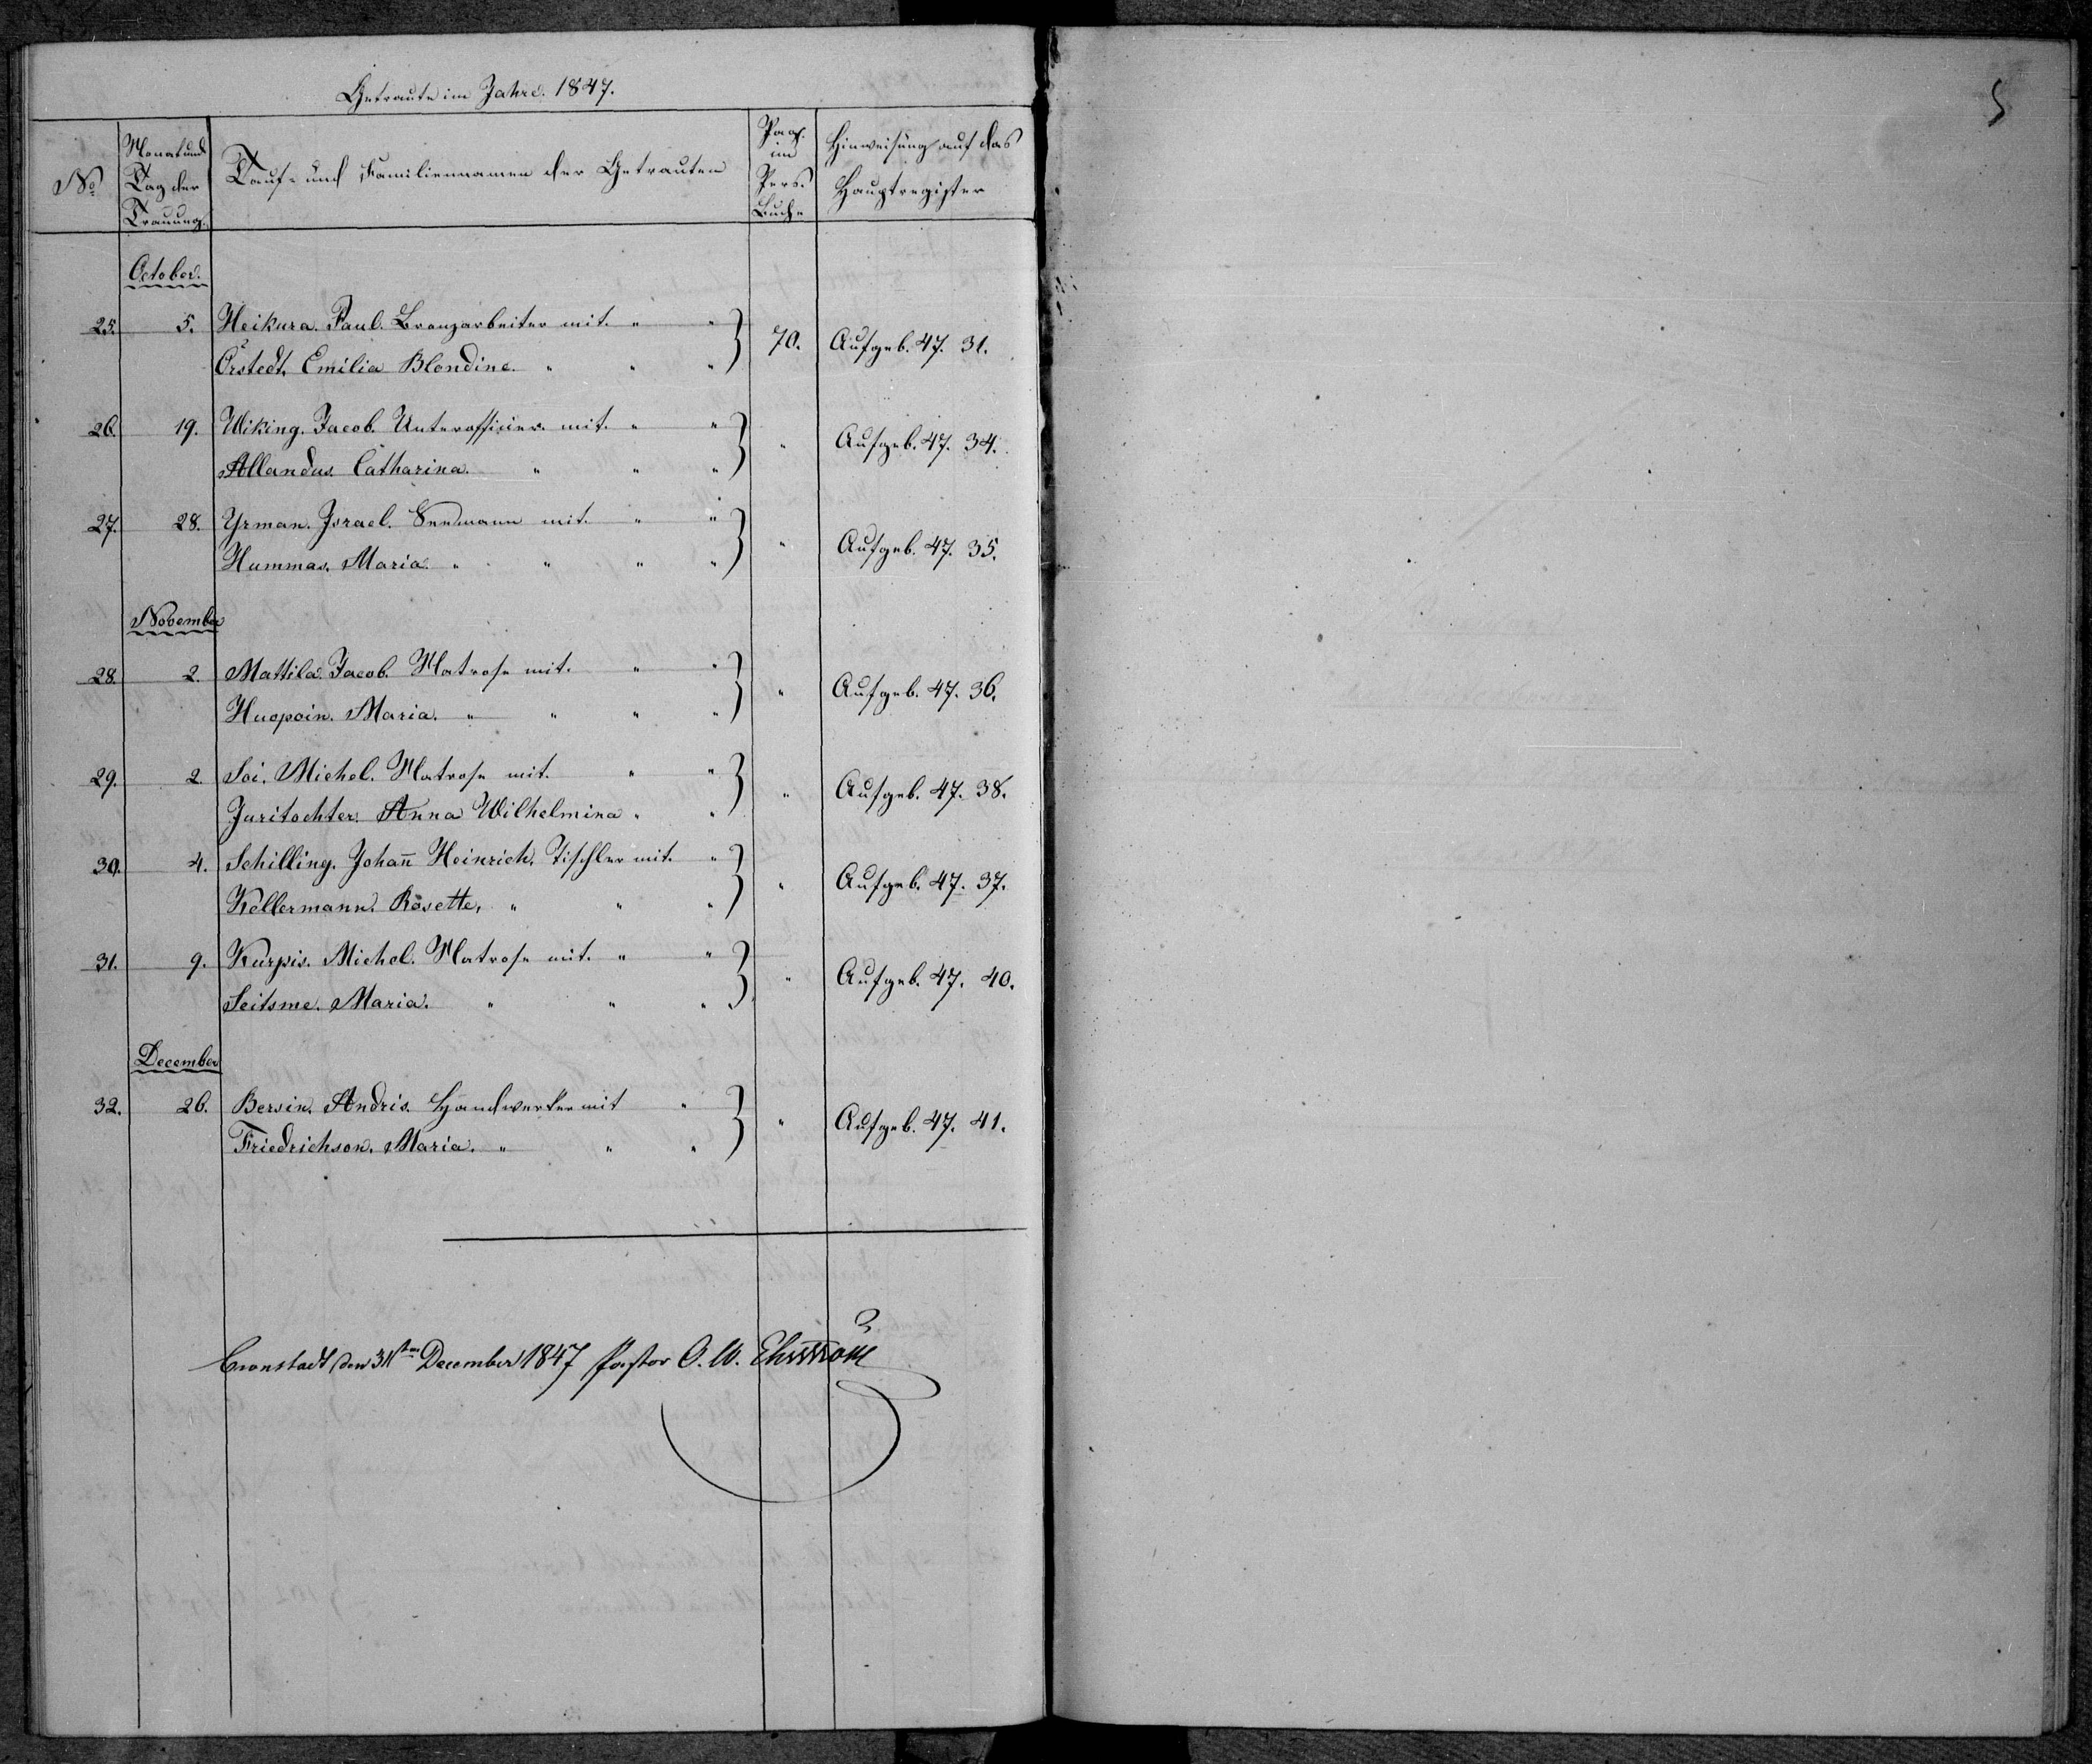 Getraute im Jahre. 1847.
No Monat und Tag der Trauung. Tauf- und Familiennamen der Getrauten Pag. im Pers. Buche Hinweisung auf das Hauptregister
5
October.
25. 5. Heikura. Paul. Bronzarbeiter mit. " " } 70. Aufgeb. 47. 31.
Örstedt, Emilia Blondine. " " "
26. 19. Wiking. Jacob. Unterofficier mit. " " } " Aufgeb. 47. 34.
Allandus. Catharina. " " "
27. 28. Yrman. Israel. Seemann mit. " " } " Aufgeb. 47. 35.
Hummas, Maria. " " " "
November
28. 2. Mattila. Jacob. Matrose mit. " " } " Aufgeb. 47. 36.
Huopoin. Maria. " " " "
29. 2. Soi. Michel. Matrose mit. " " } " Aufgeb. 47. 38.
Juritochter. Anna Wilhelmina " "
30. 4. Schilling. Joham̄ Heinrich. Tischler mit. " } " Aufgeb. 47. 37.
Kellermann. Rosette, " " "
31. 9. Kurpis. Michel. Matrose mit. " " } " Aufgeb. 47. 40.
Seitsme. Maria. " " "
December
32. 26. Bersin. Andris. Handwerker mit " } " Aufgeb. 47. 41.
Friedrichson. Maria. " " "
Cronstadt den 31sten December 1847 Pastor C. W. Ehrström